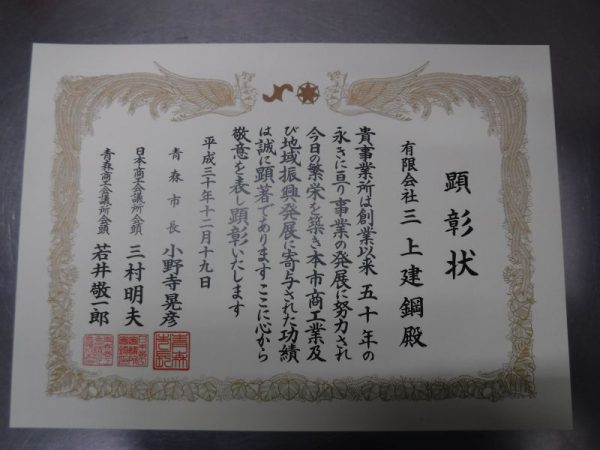 顕彰状
有限会社 三上建鋼殿
貴事業所は創業以来 五十年の
永きに亘り事業の発展に努力され
今日の繁栄を築き本市商工業及
び地域振興発展に寄与された功績
は誠に顕著でありますここに心から
敬意を表し顕彰いたします
平成三十年十二月十九日
青森市長 小野寺晃彦
日本商工会議所会頭 三村明夫
青森商工会議所会頭 若井敬一郎